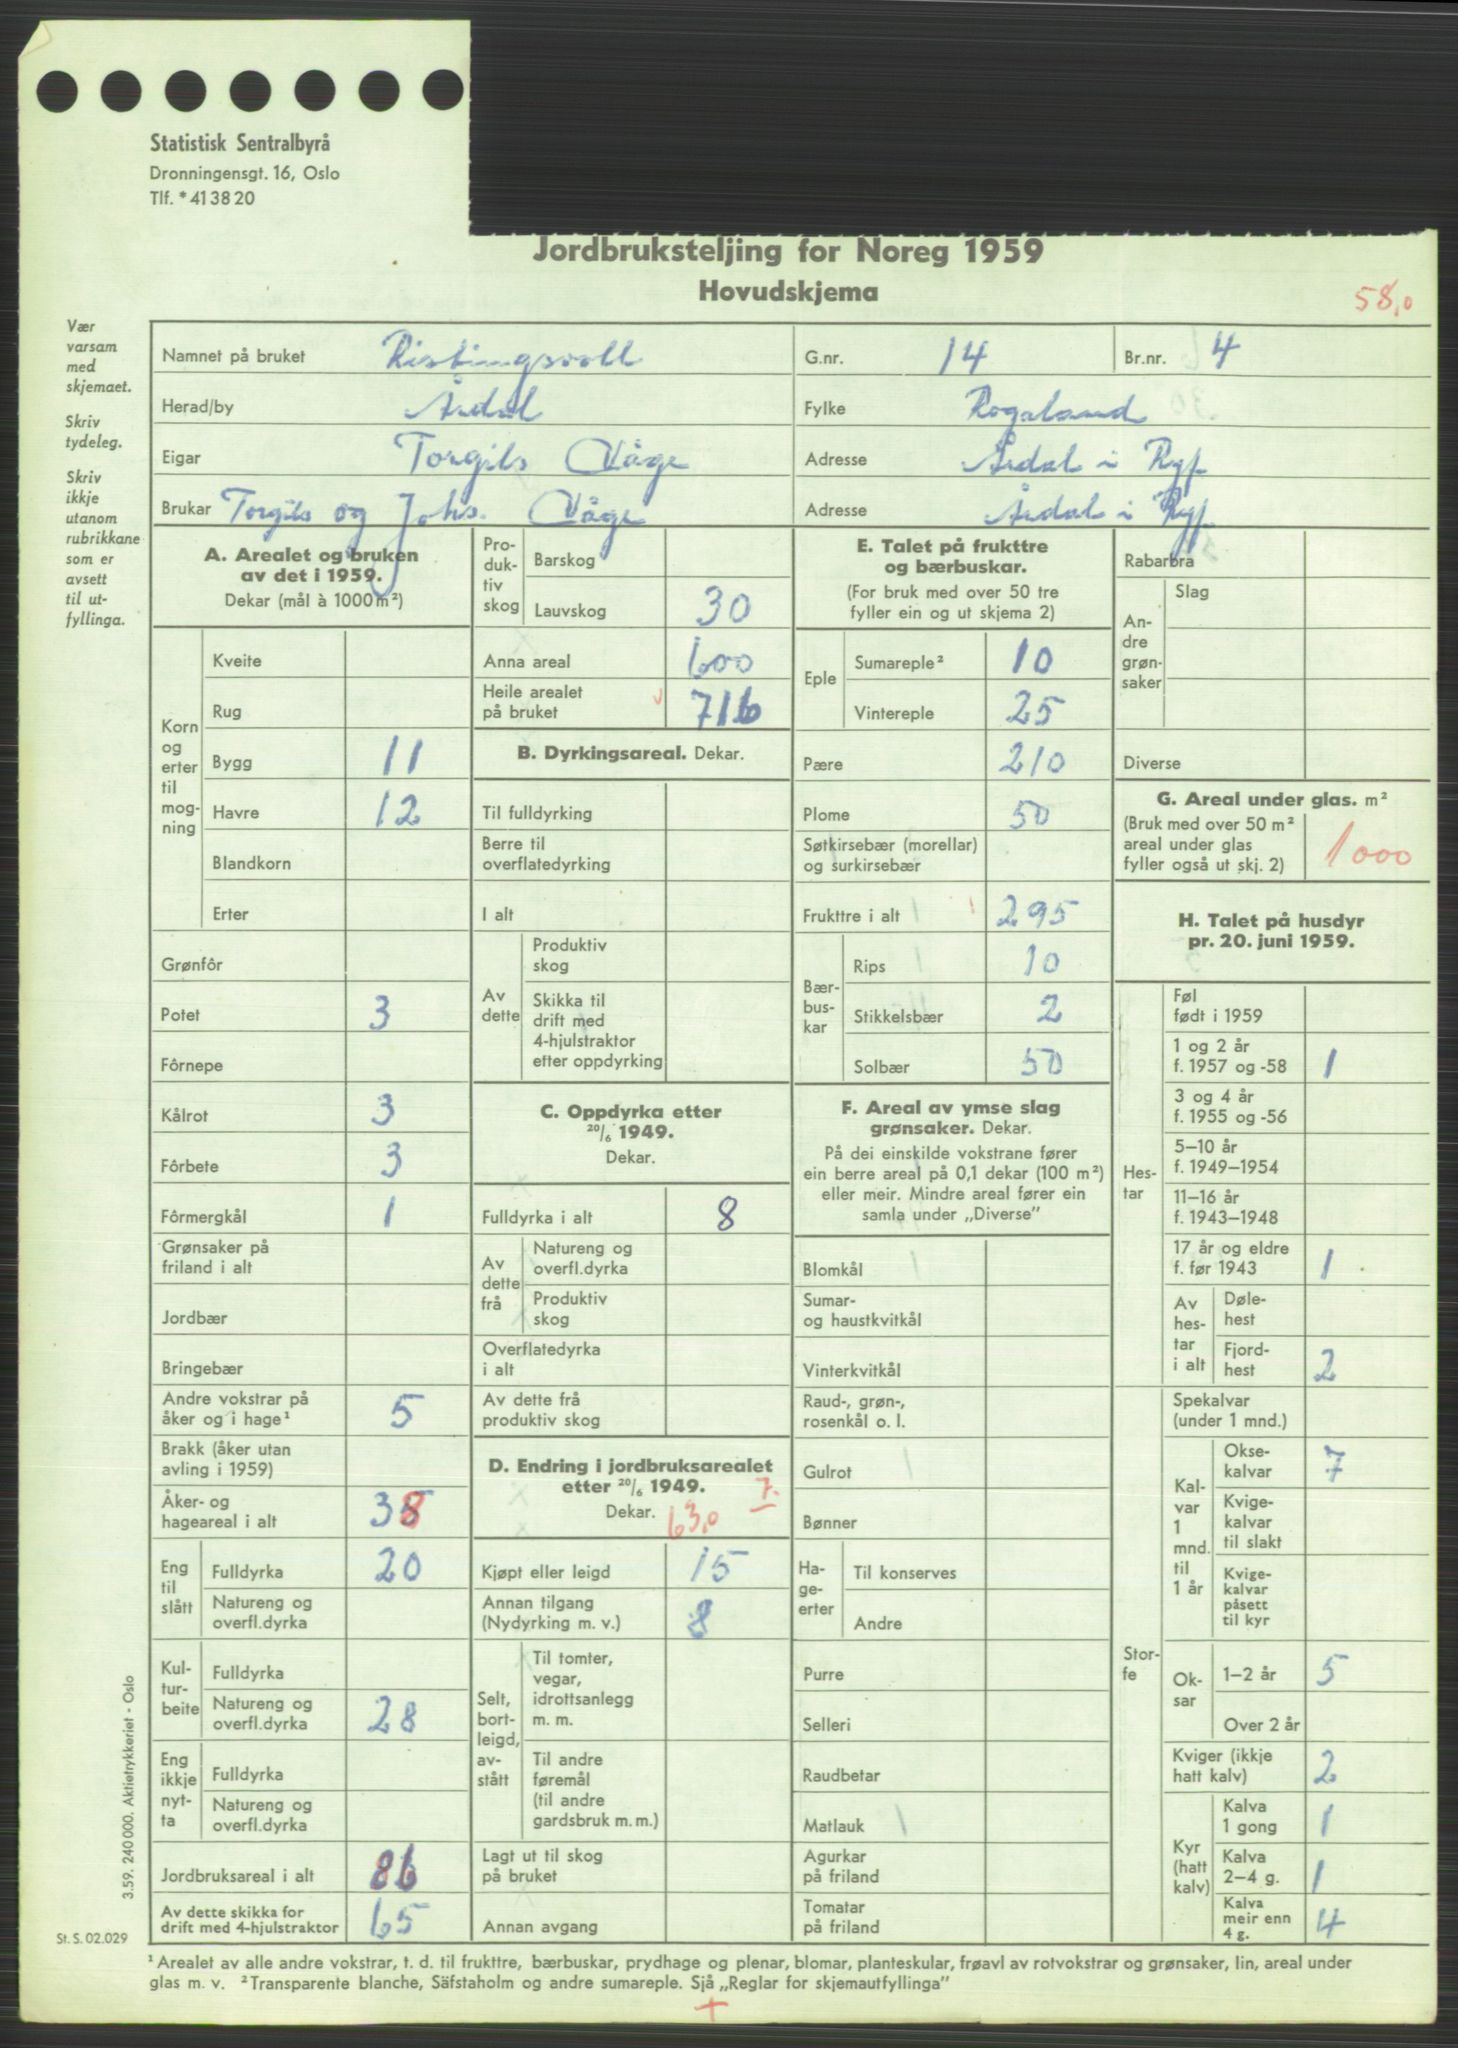 Statistisk Sentralbyrå
Dronningensgt. 16, Oslo
Tlf. *41 38 20
Jordbruksteljing for Noreg 1959
Hovudskjema
58,0
Vær
varsam
med
skjemaet.
Skriv
tydeleg.
Skriv
ikkje
utanom
rubrikkane
som er
avsett
til ut-
fyllinga.
Namnet på bruket Ristingsvoll G.nr. 14 Br.nr. 4
Herad/by Årdal Fylke Rogaland
Eigar Torgils Våge Adresse Årdal i Ryf
Brukar Torgils og Johs. Våge Adresse Årdal i Ryf
A. Arealet og bruken
av det i 1959.
Dekar (mål à 1000 m²)
Korn
og
erter
til
mog-
ning
Kveite
Rug
Bygg 11
Havre 12
Blandkorn
Erter
Grønfôr
Potet 3
Fôrnepe
Kålrot 3
Fôrbete 3
Fôrmergkål 1
Grønsaker på
friland i alt
Jordbær
Bringebær
Andre vokstrar på
åker og i hage¹ 5
Brakk (åker utan
avling i 1959)
Åker- og
hageareal i alt 38
Eng
til
slått
Fulldyrka 20
Natureng og
overfl.dyrka
Kul-
tur-
beite
Fulldyrka
Natureng og
overfl.dyrka 28
Eng
ikkje
nyt-
ta
Fulldyrka
Natureng og
overfl.dyrka
Jordbruksareal i alt 86
Av dette skikka for
drift med 4-hjulstraktor 65
Pro-
duk-
tiv
skog
Barskog
Lauvskog 30
Anna areal 600
Heile arealet
på bruket 716
B. Dyrkingsareal. Dekar.
Til fulldyrking
Berre til
overflatedyrking
I alt
Av
dette
Produktiv
skog
Skikka til
drift med
4-hjulstraktor
etter oppdyrking
C. Oppdyrka etter
20/6 1949.
Dekar.
Fulldyrka i alt 8
Av
dette
frå
Natureng og
overfl.dyrka
Produktiv
skog
Overflatedyrka
i alt
Av dette frå
produktiv skog
D. Endring i jordbruksarealet
etter 20/6 1949. 7.
Dekar. 63,0
Kjøpt eller leigd 15
Annan tilgang
(Nydyrking m. v.) 8
Selt,
bort-
leigd,
av-
stått
Til tomter,
vegar,
idrottsanlegg
m. m.
Til andre
føremål
(til andre
gardsbruk m. m.)
Lagt ut til skog
på bruket
Annan avgang
E. Talet på frukttre
og bærbuskar.
(For bruk med over 50 tre
fyller ein og ut skjema 2)
Eple
Sumareple² 10
Vintereple 25
Pære 210
Plome 50
Søtkirsebær (morellar)
og surkirsebær
Frukttre i alt 295
Bær-
bus-
kar
Rips 10
Stikkelsbær 2
Solbær 50
F. Areal av ymse slag
grønsaker. Dekar.
På dei einskilde vokstrane fører
ein berre areal på 0,1 dekar (100 m²)
eller meir. Mindre areal fører ein
samla under „Diverse”
Blomkål
Sumar-
og haustkvitkål
Vinterkvitkål
Raud-, grøn-,
rosenkål o. l.
Gulrot
Bønner
Ha-
ge-
erter
Til konserves
Andre
Purre
Selleri
Raudbetar
Matlauk
Agurkar
på friland
Tomatar
på friland
Rabarbra
An-
dre
grøn-
saker
Slag
Diverse
G. Areal under glas. m²
(Bruk med over 50 m²
areal under glas
fyller også ut skj. 2) 1000
H. Talet på husdyr
pr. 20. juni 1959.
Hes-
tar
Føl
født i 1959
1 og 2 år
f. 1957 og -58 1
3 og 4 år
f. 1955 og -56
5–10 år
f. 1949–1954
11–16 år
f. 1943–1948
17 år og eldre
f. før 1943 1
Av
hes-
tar
i alt
Døle-
hest
Fjord-
hest 2
Stor-
fe
Spekalvar
(under 1 mnd.)
Kal-
var
1
mnd.
til
1 år
Okse-
kalvar 7
Kvige-
kalvar
til slakt
Kvige-
kalvar
påsett
til kyr
Ok-
sar
1–2 år 5
Over 2 år
Kviger (ikkje
hatt kalv) 2
Kyr
(hatt
kalv)
Kalva
1 gong 1
Kalva
2–4 g. 1
Kalva
meir enn
4 g. 4
3.59. 240 000. Aktietrykkeriet - Oslo
St. S. 02.029
¹ Arealet av alle andre vokstrar, t. d. til frukttre, bærbuskar, prydhage og plenar, blomar, planteskular, frøavl av rotvokstrar og grønsaker, lin, areal under
glas m. v. ² Transparente blanche, Säfstaholm og andre sumareple. Sjå „Reglar for skjemautfyllinga”